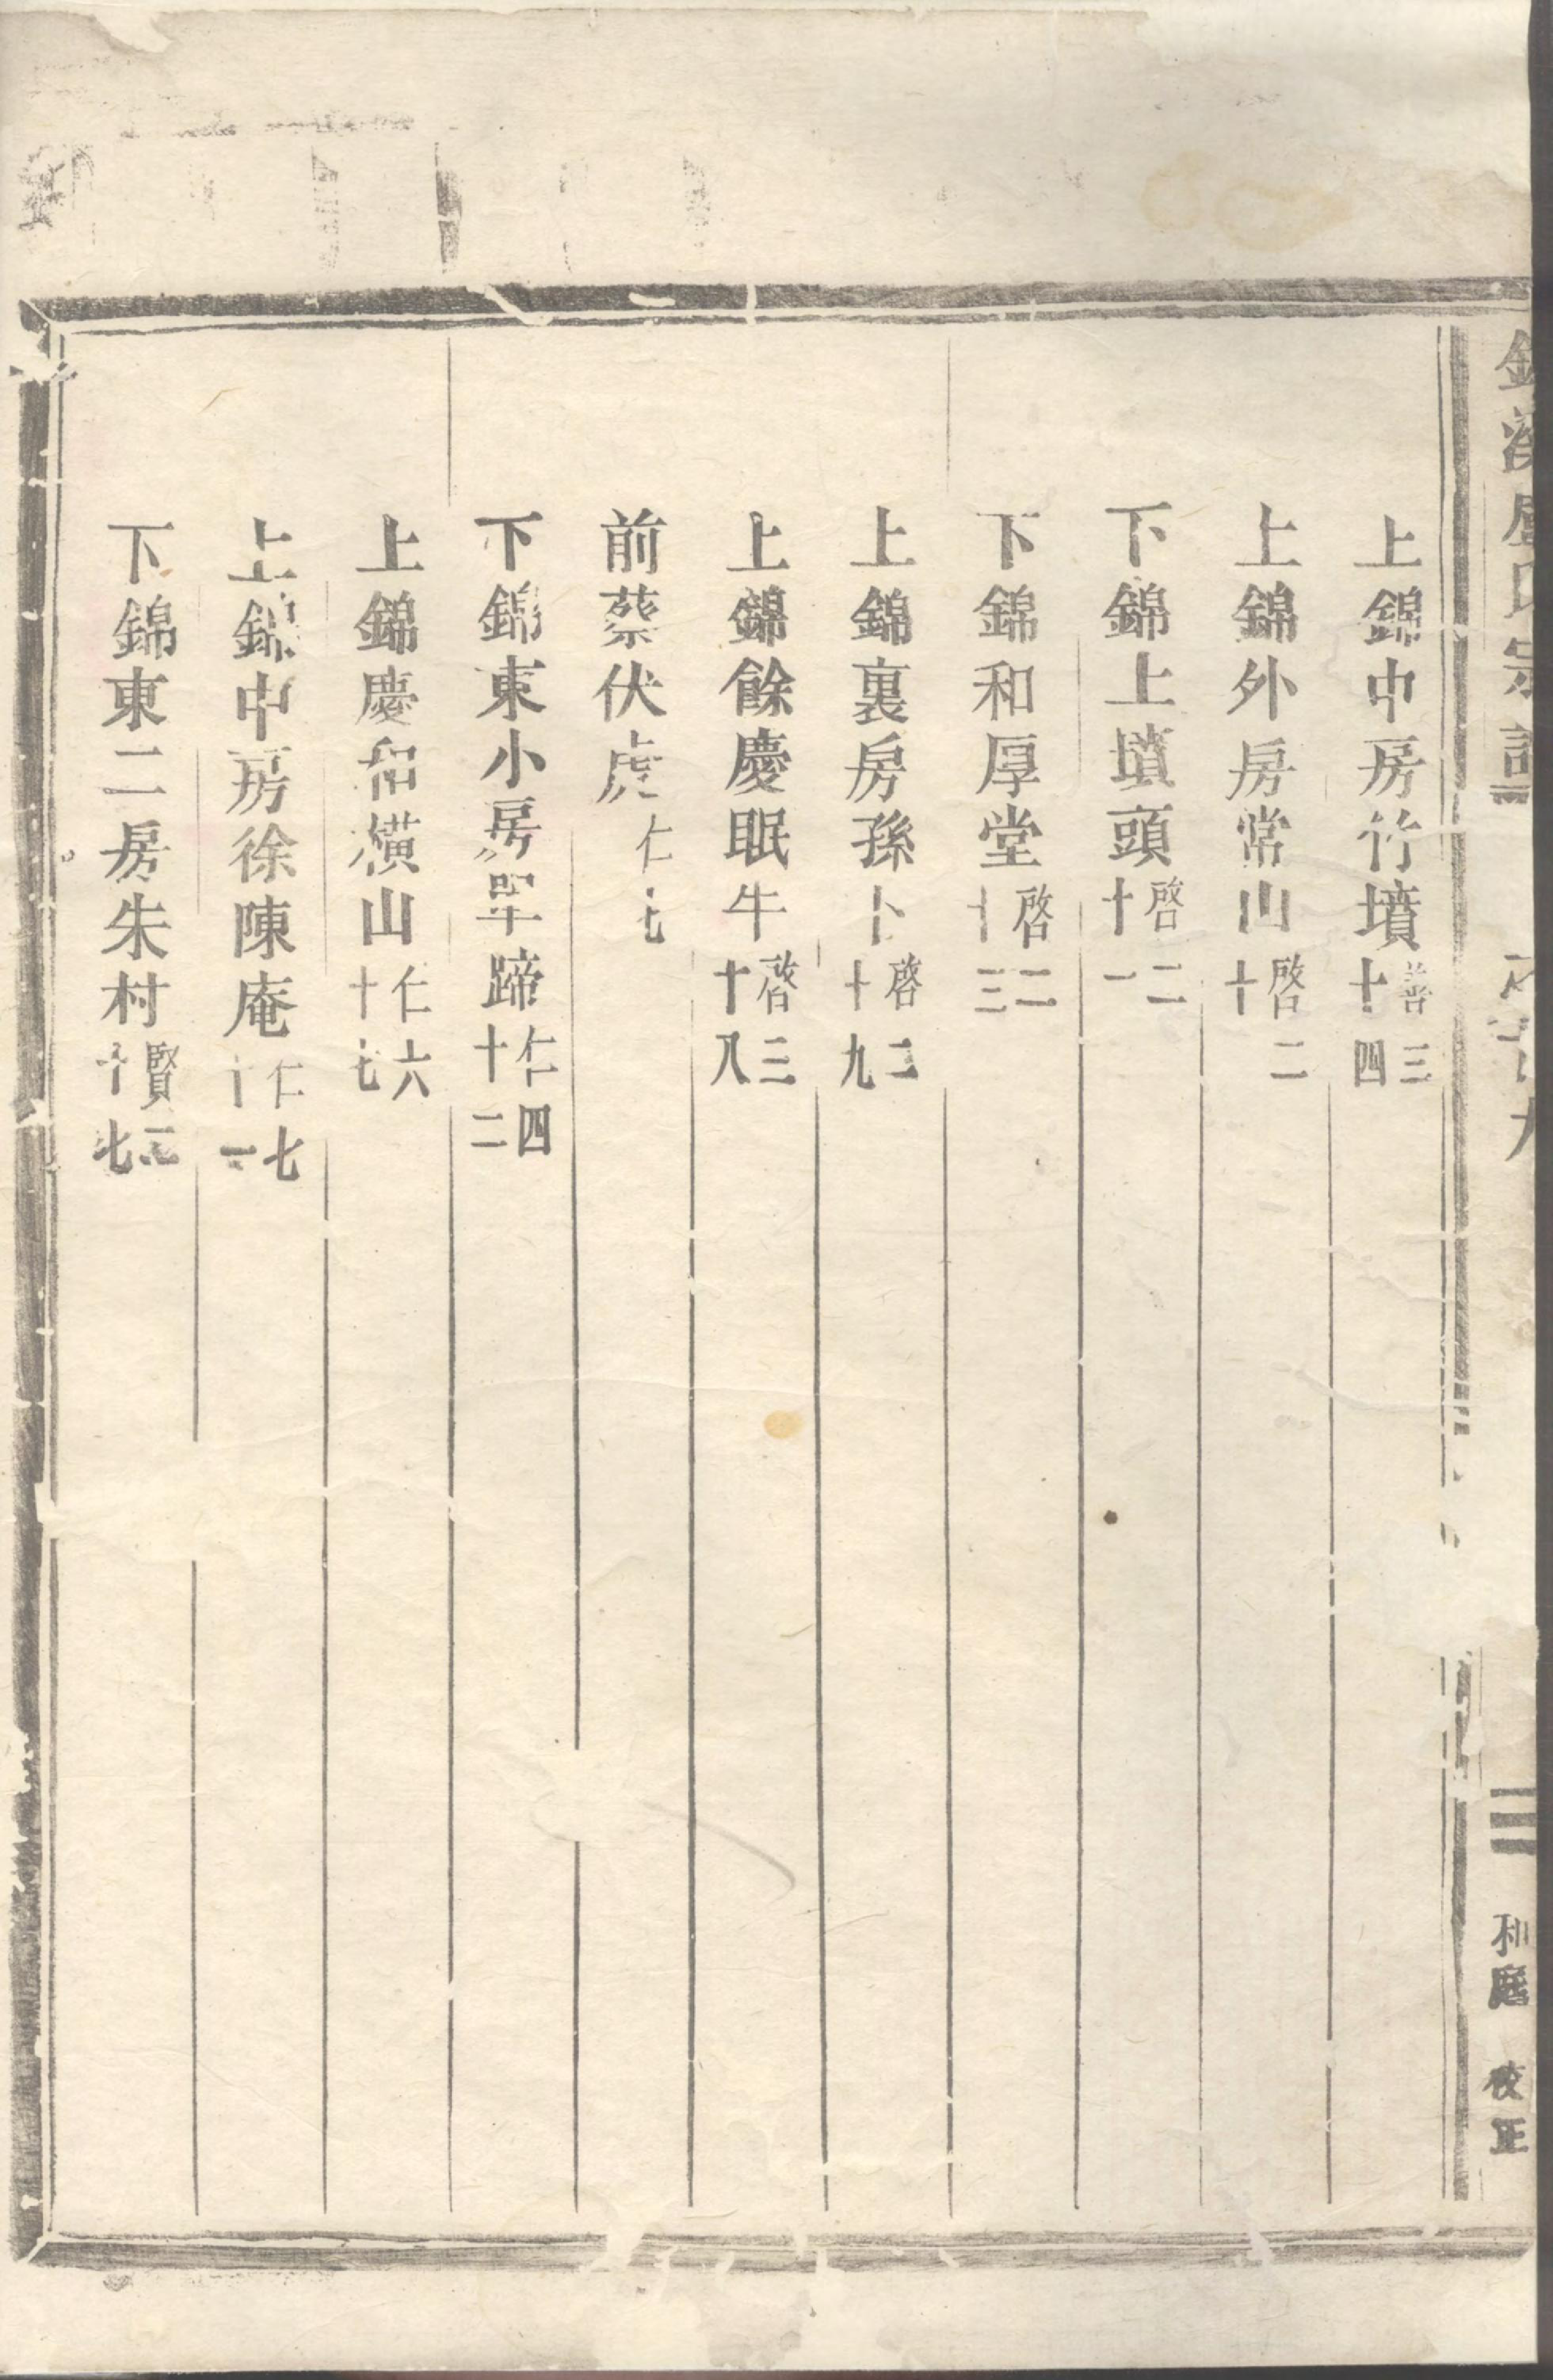 錦溪盧氏宗譜 九 三 和庭 校正
上錦中房竹墳善三十四
上錦外房常山啓二十
下錦上墳頭啓二十一
下錦和厚堂啓二十三
上錦裏房孫卜啓二十九
上錦餘慶眠牛啓三十八
前蔡伏虎仁七
下錦東小房單蹄仁四十二
上錦慶和橫山仁六十七
上錦中房徐陳庵仁七十一
下錦東二房朱村賢三十七